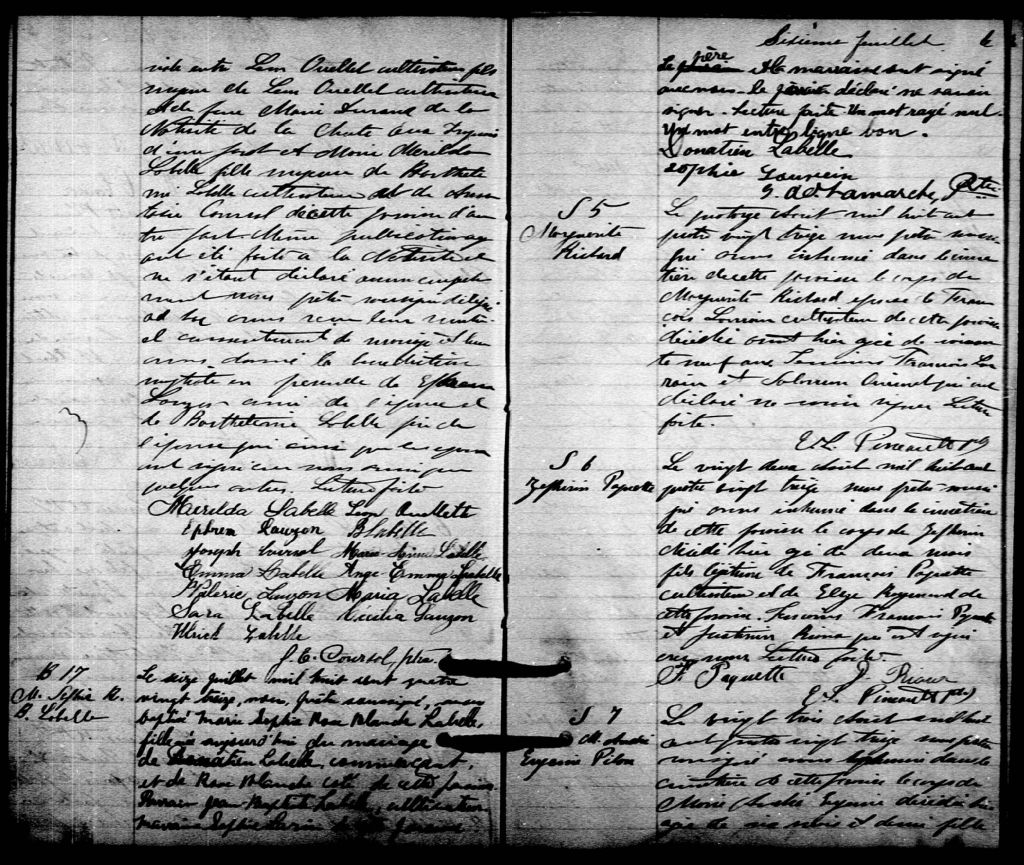 vide entre Léon Ouellet cultivateur fils
majeur de Léon Ouellet cultivateur
et de feue Marie Durand de la
Nativité de la
d'une part et Marie Merilda
Labelle fille mineure de Barthele
mi Labelle cultivateur et de Anas
tasie Coursol de cette paroisse d'au
tre part. Même publication ayant
ont été faite à la Nativité et
ne s'étant déclaré aucun empêche
ment nous prêtre soussigné délégué
ad hoc avons reçu leur mutu
el consentement de mariage et leur
avons donné la bénédiction
nuptiale en présence de Ephrem
Lauzon ami de l'époux et
de Barthelemie Labelle père de
l'épouse qui ainsi que les époux
ont signé avec nous ainsi que
quelques autres. Lecture faite
Merilda Labelle Léon Ouellette
Ephrem Lauzon B Labelle
Joseph Coursol Maria-Anna Labelle
Emma Labelle Ange-Emma Labelle
Valerie Lauzon Maria Labelle
Sara Labelle Cécilia Lauzon
Ulrick Labelle
J. E. Coursol, ptre.
B 17
M. Sophie R.
B. Labelle
Le seize juillet mil huit cent quatre
vingt treize, nous, prêtre soussigné, avons
baptisé Marie Sophie Rose Blanche Labelle,
fille née aujourd'hui du mariage
de Donatien Labelle, commerçant,
et de Rose Blanche de cette paroisse
Parrain Jean-Baptiste Labelle, cultivateur,
marraine Sophie de
Sixième feuillet 6
père
Le et la marraine ont signé
avec nous. le parrain déclaré ne savoir
signer. Lecture faite. Un mot rayé nul.
Un mot entre ligne bon.
Donatien Labelle
Sophie Lauzein
Lamarche, Ptre
S 5
Marguerite
Richard
Le quatorze août mil huit cent
quatre vingt treize nous prêtre sous
signé avons inhumé dans le cime
tière de cette paroisse le corps de
Marguerite Richard épouse de Fran
çois Lorrain cultivateur de cette paroisse
décédée avant hier agée de soixan
te neuf ans Temoins François Lor
rain et Salomon Ouimet qui ont
déclaré ne savoir signer Lecture
faite.
E. L. Pineault ptre
S 6
Zephirin Paquette
Le vingt deux août mil huit cent
quatre vingt treize nous prêtre sous
signé avons inhumé dans le cimetière
de cette paroisse le corps de Zephirin
décédé hier agé de deux mois
fils légitime de François Paquette
cultivateur et de Elize Raymond de
cette paroisse. Temoins François Paquette
et Justinien qui ont signé
avec nous Lecture faite
F. Paquette
E. L. Pineault ptre
S 7
M. André
Eugénie Pilon
Le vingt trois août mil huit
cent quatre vingt treize nous prêtre
soussigné avons inhumé dans le
cimetière de cette paroisse le corps de
Marie André Eugénie décédée hier
agée de six mois et demi fille